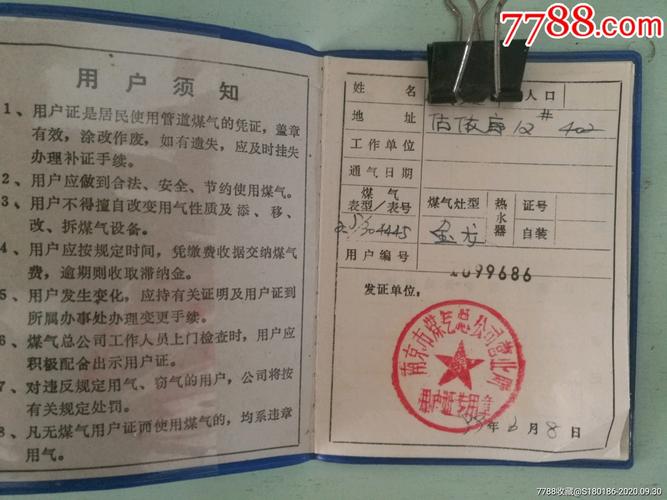 7788.com
用户须知
1、用户证是居民使用管道煤气的凭证，盖章
有效，涂改作废，如有遗失，应及时挂失
办理补证手续。
2、用户应做到合法、安全、节约使用煤气。
3、用户不得擅自改变用气性质及添、移、
改、拆煤气设备。
4、用户应按规定时间，凭缴费收据交纳煤气
费，逾期则收取滞纳金。
5、用户发生变化，应持有关证明及用户证到
所属办事处办理变更手续。
6、煤气总公司工作人员上门检查时，用户应
积极配合出示用户证。
7、对违反规定用气、窃气的用户，公司将按
有关规定处罚。
8、凡无煤气用户证而使用煤气的，均系违章
用气。
姓名
人口
地址
12# 402
工作单位
通气日期
煤气
表型/表号
煤气灶型
热水器
证号
自装
304445
用户编号
099686
发证单位：
南京市煤气总公司营业所
用户证专用章
年6月8日
7788收藏@S180186-2020.09.30